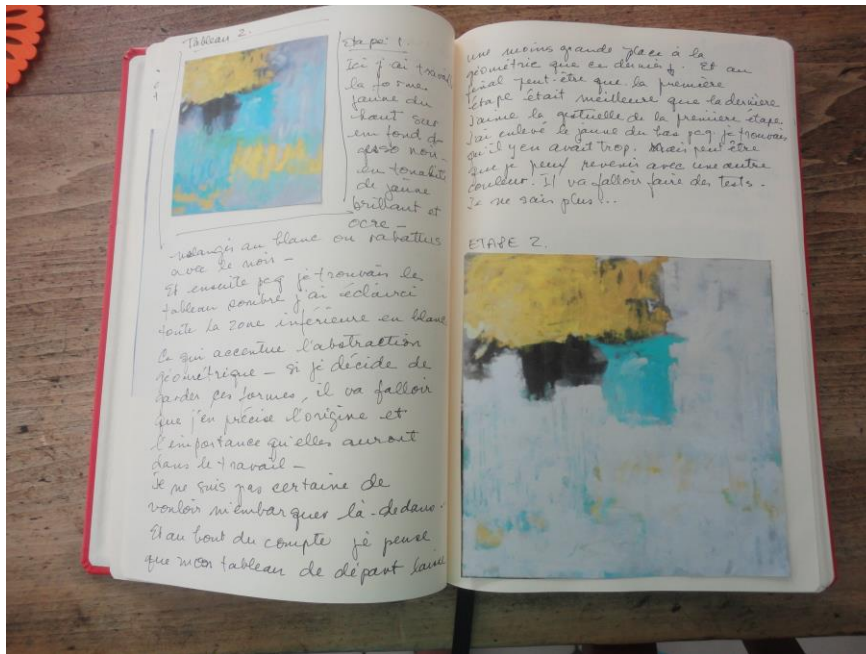 Tableau 2.
Etape 1.
Ici j'ai travaillé
la forme
jaune du
haut sur
un fond de
gesso noir -
en tonalité
de jaune
brillant et
ocre -
mélangés au blanc ou rabattus
avec le noir -
Et ensuite pcq je trouvais le
tableau sombre j'ai éclairci
toute la zone inférieure en blanc
Ce qui accentue l'abstraction
géométrique - si je décide de
garder ces formes, il va falloir
que j'en précise l'origine et
l'importance qu'elles auront
dans le travail -
Je ne suis pas certaine de
vouloir m'embarquer là-dedans.
Et au bout du compte je pense
que mon tableau de départ laisse
une moins grande place à la
géométrie que ce dernier. Et au
final peut-être que la première
étape était meilleure que la dernière
J'aime la gestuelle de la première étape.
J'ai enlevé le jaune du bas pcq je trouvais
qu'il y en avait trop. Mais peut être
que je peux revenir avec une autre
couleur. Il va falloir faire des tests.
Je ne sais plus...
ETAPE 2.